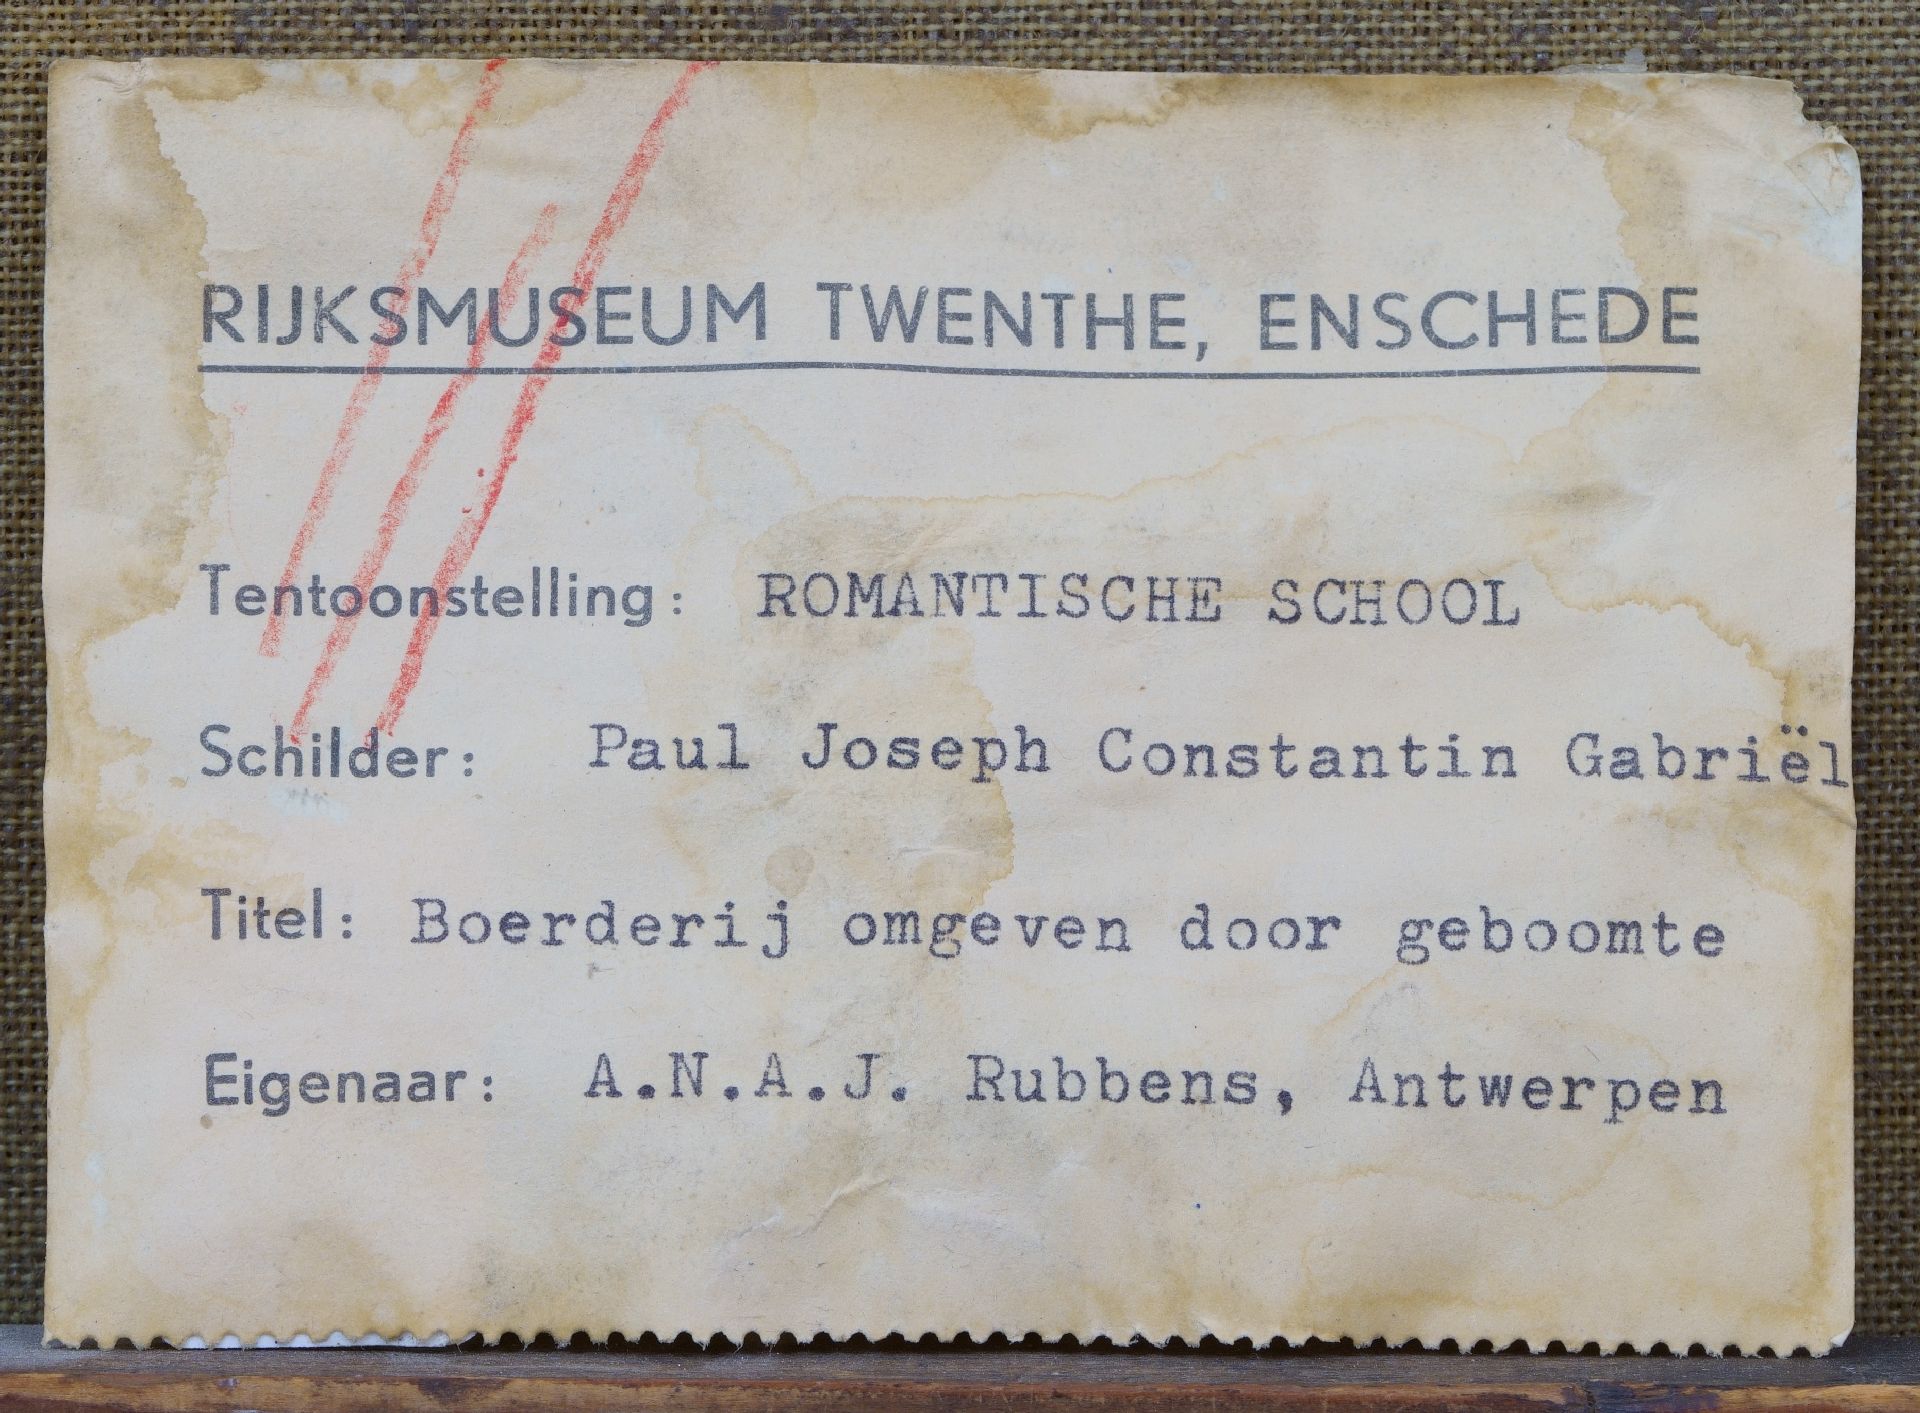 RIJKSMUSEUM TWENTHE, ENSCHEDE
Tentoonstelling: ROMANTISCHE SCHOOL
Schilder: Paul Joseph Constantin Gabriël
Titel: Boerderij omgeven door geboomte
Eigenaar: A.N.A.J. Rubbens, Antwerpen